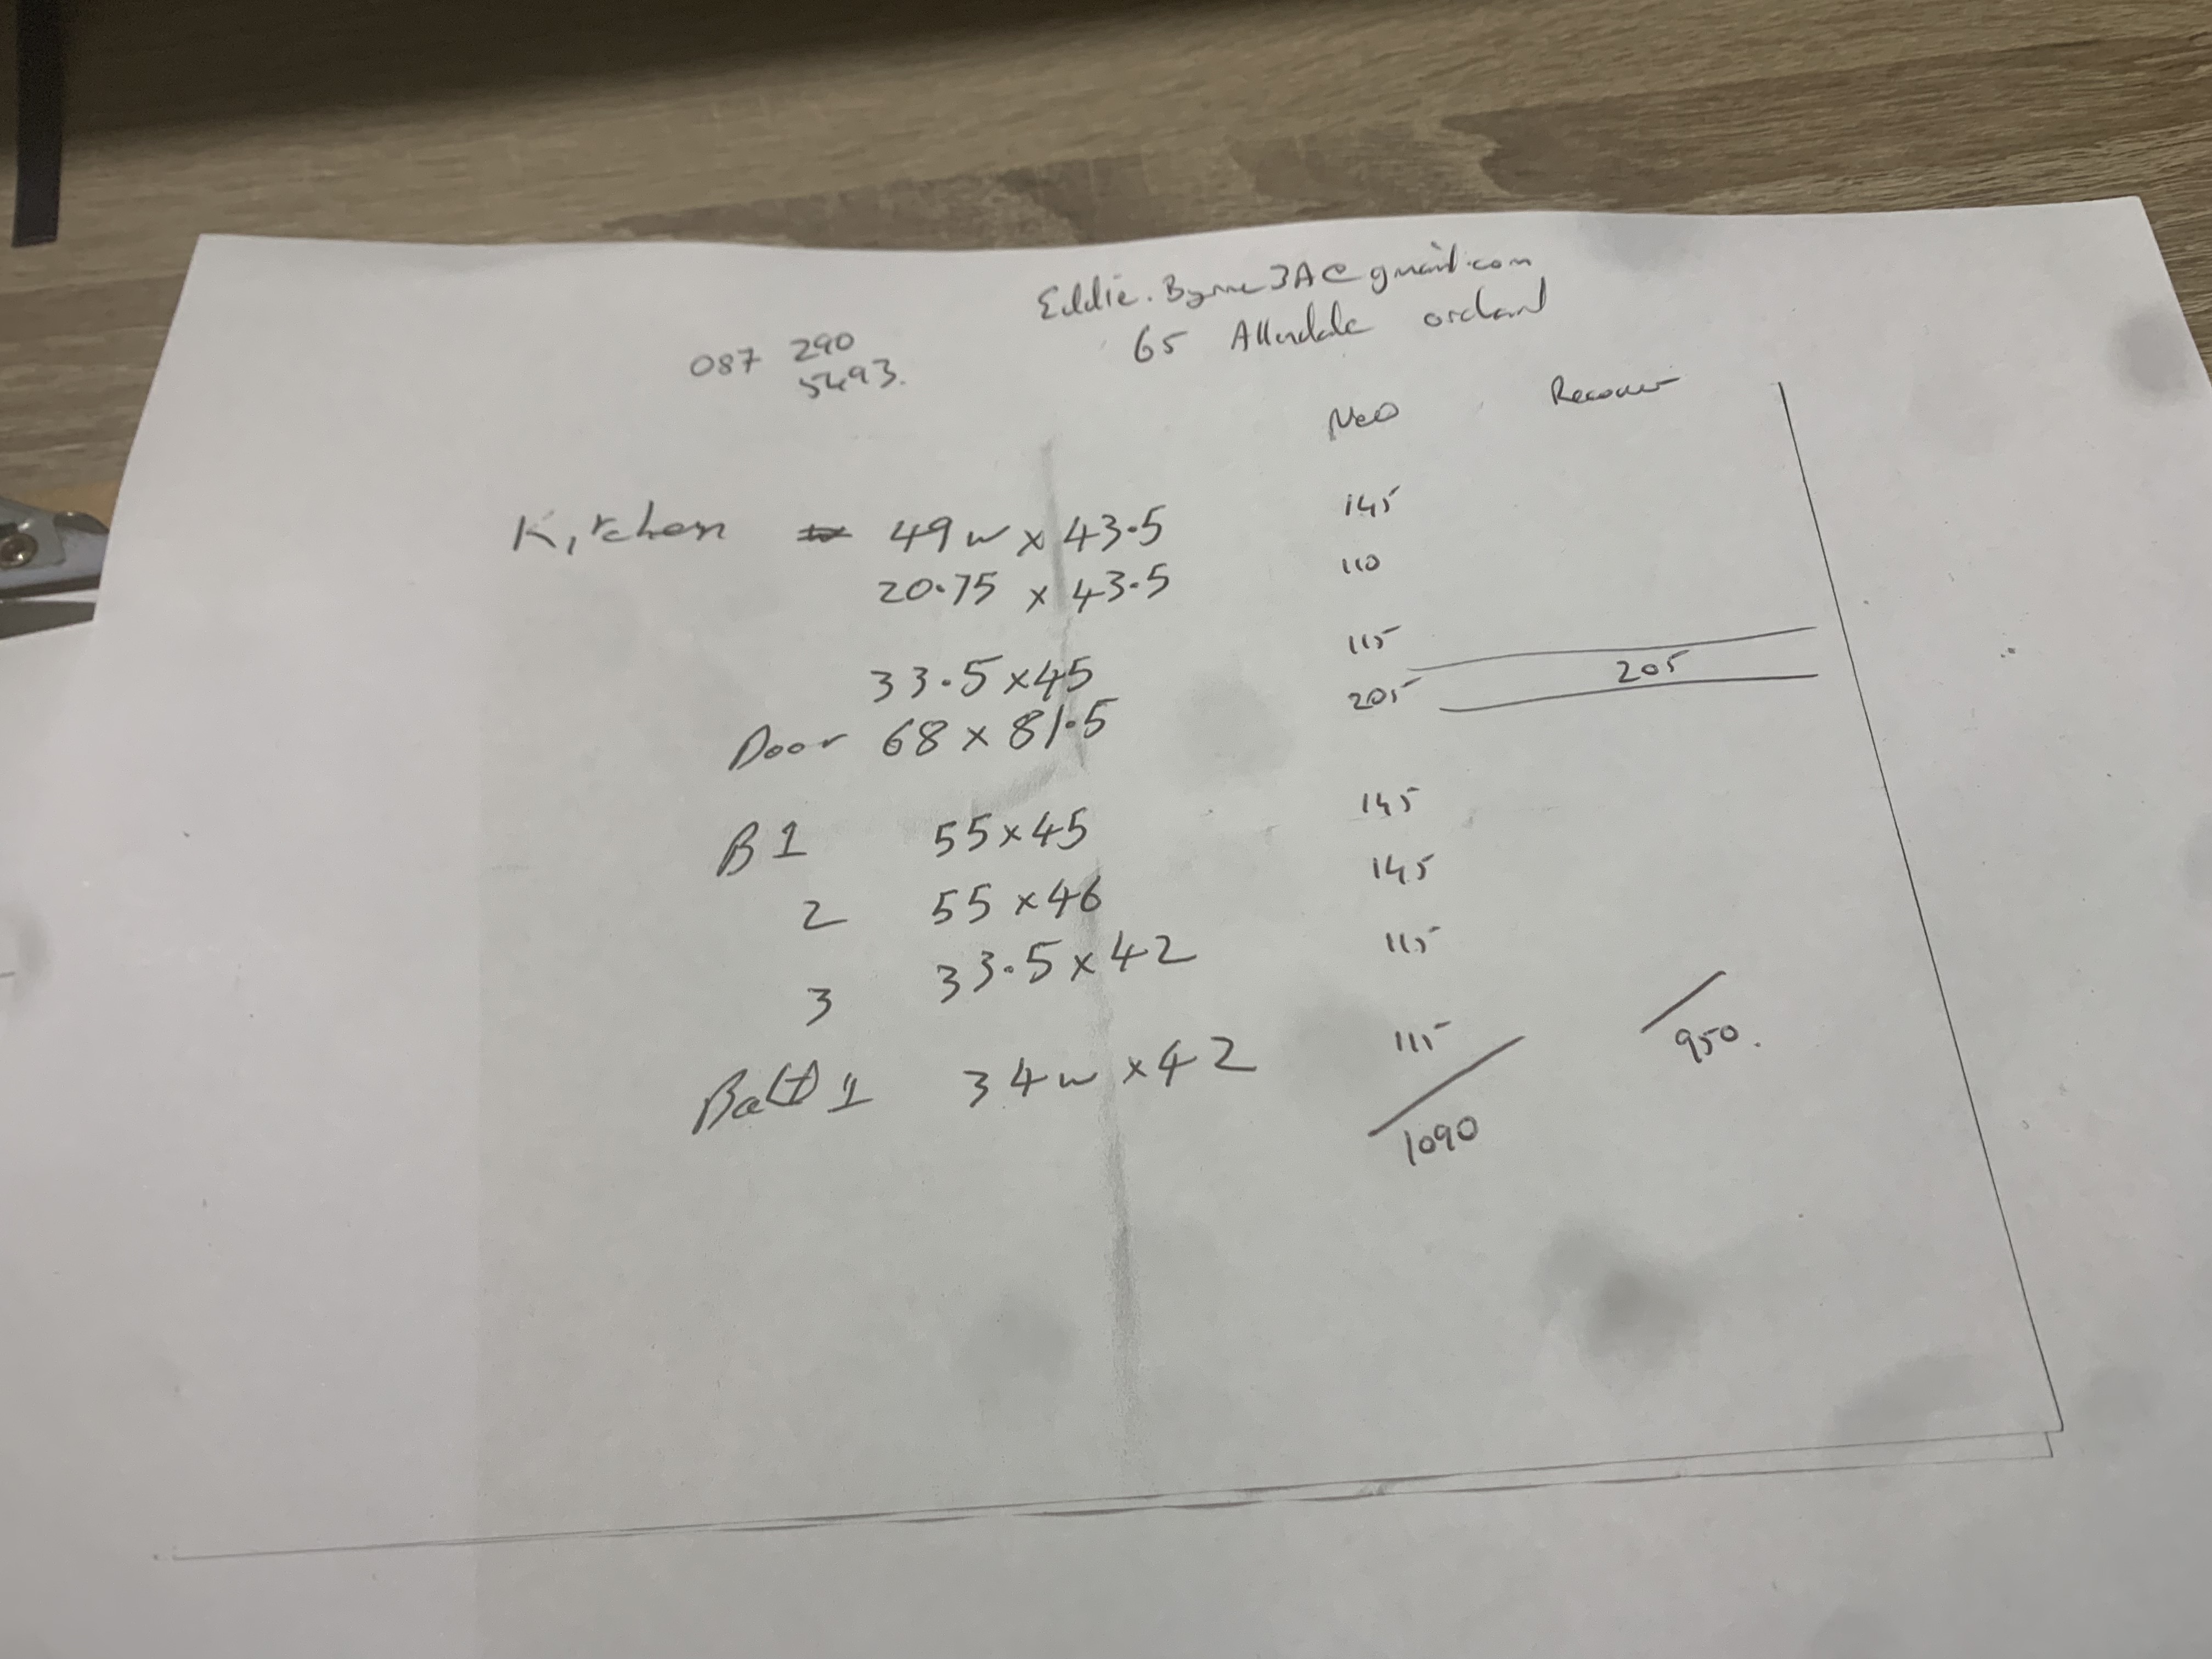 Eddie.Byrne3A@gmail.com
65 Allendale orchard
087 290
5493.
New Recover
Kitchen 49w x 43.5 145
20.75 x 43.5 110
33.5 x 45 115
Door 68 x 81.5 205 205
B1 55 x 45 145
2 55 x 46 145
3 33.5 x 42 115
Bath 1 34w x 42 115
950.
1090